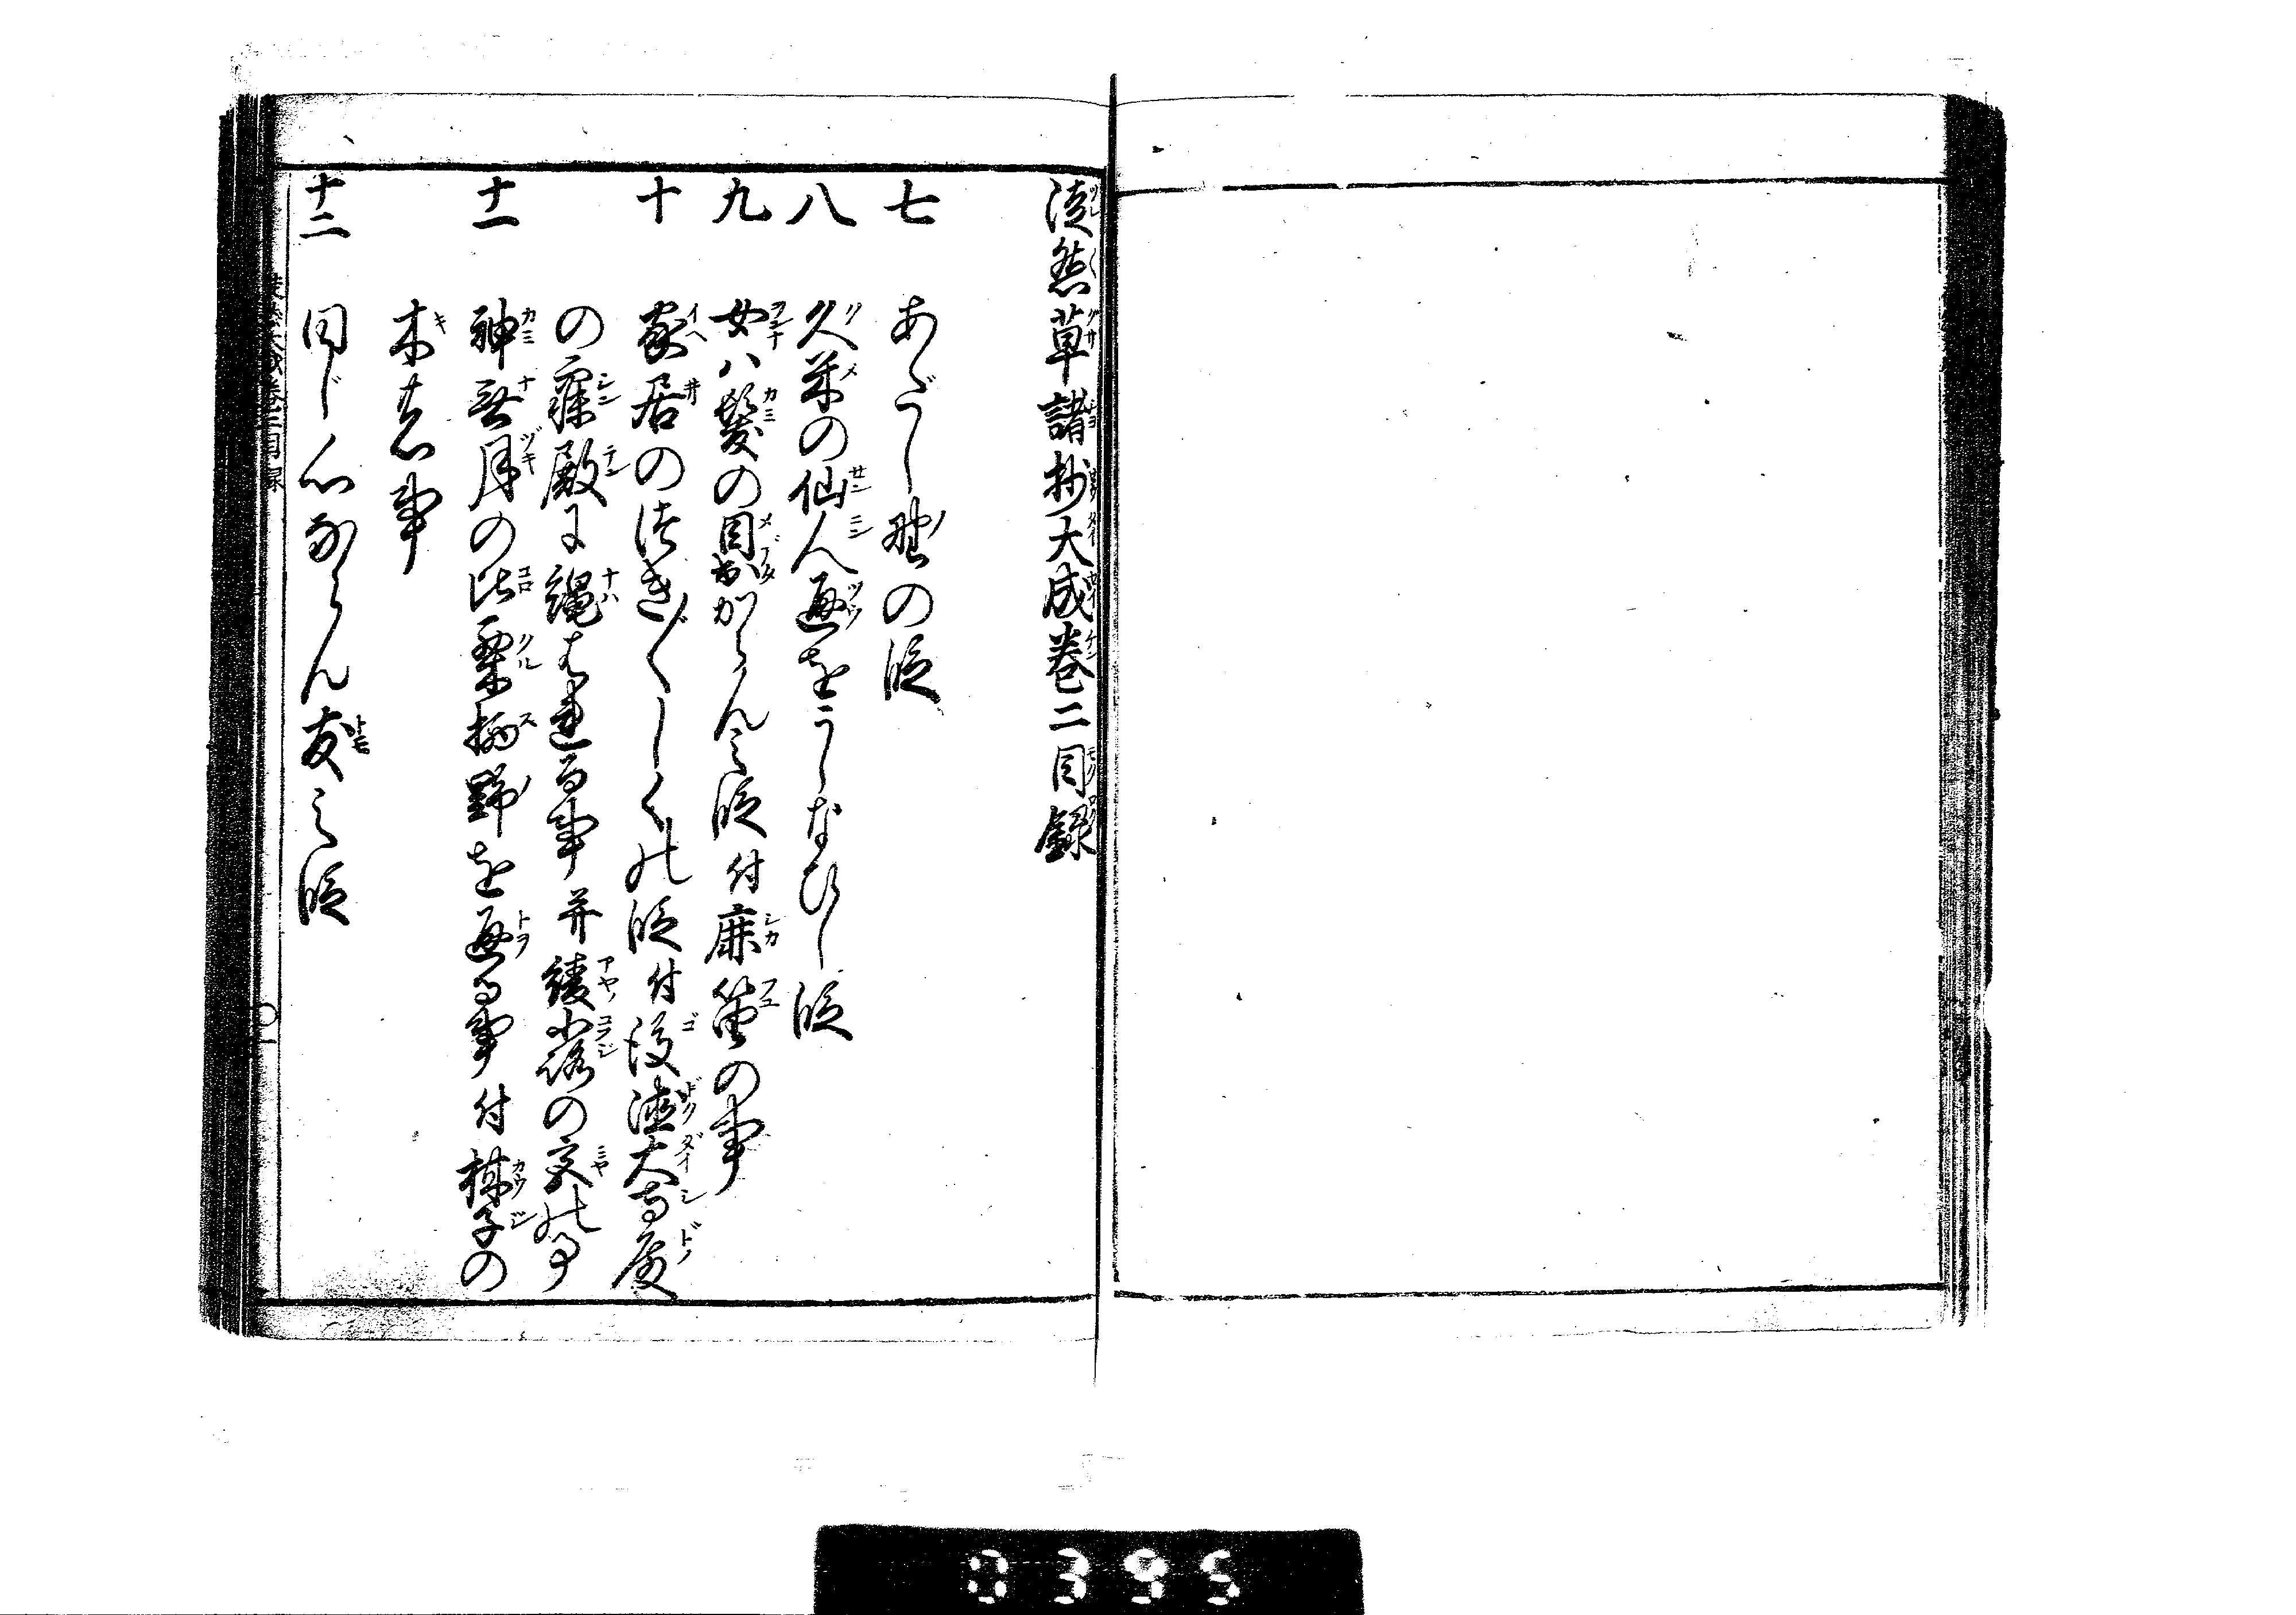 徒然草諸抄大成巻二目録
七 あだし野の段
八 久米の仙人通をうしなひし段
九 女ハ髪の目出からん之段 付 鹿笛の事
十 家居のつき〴〵しくの段 付 後徳大寺殿
の寝殿に縄はれたる事 并 綾小路の宮の事
十一 神無月の比栗栖野を通る事 付 柑子の
木有し事
十二 同じ心ならん友之段
0395